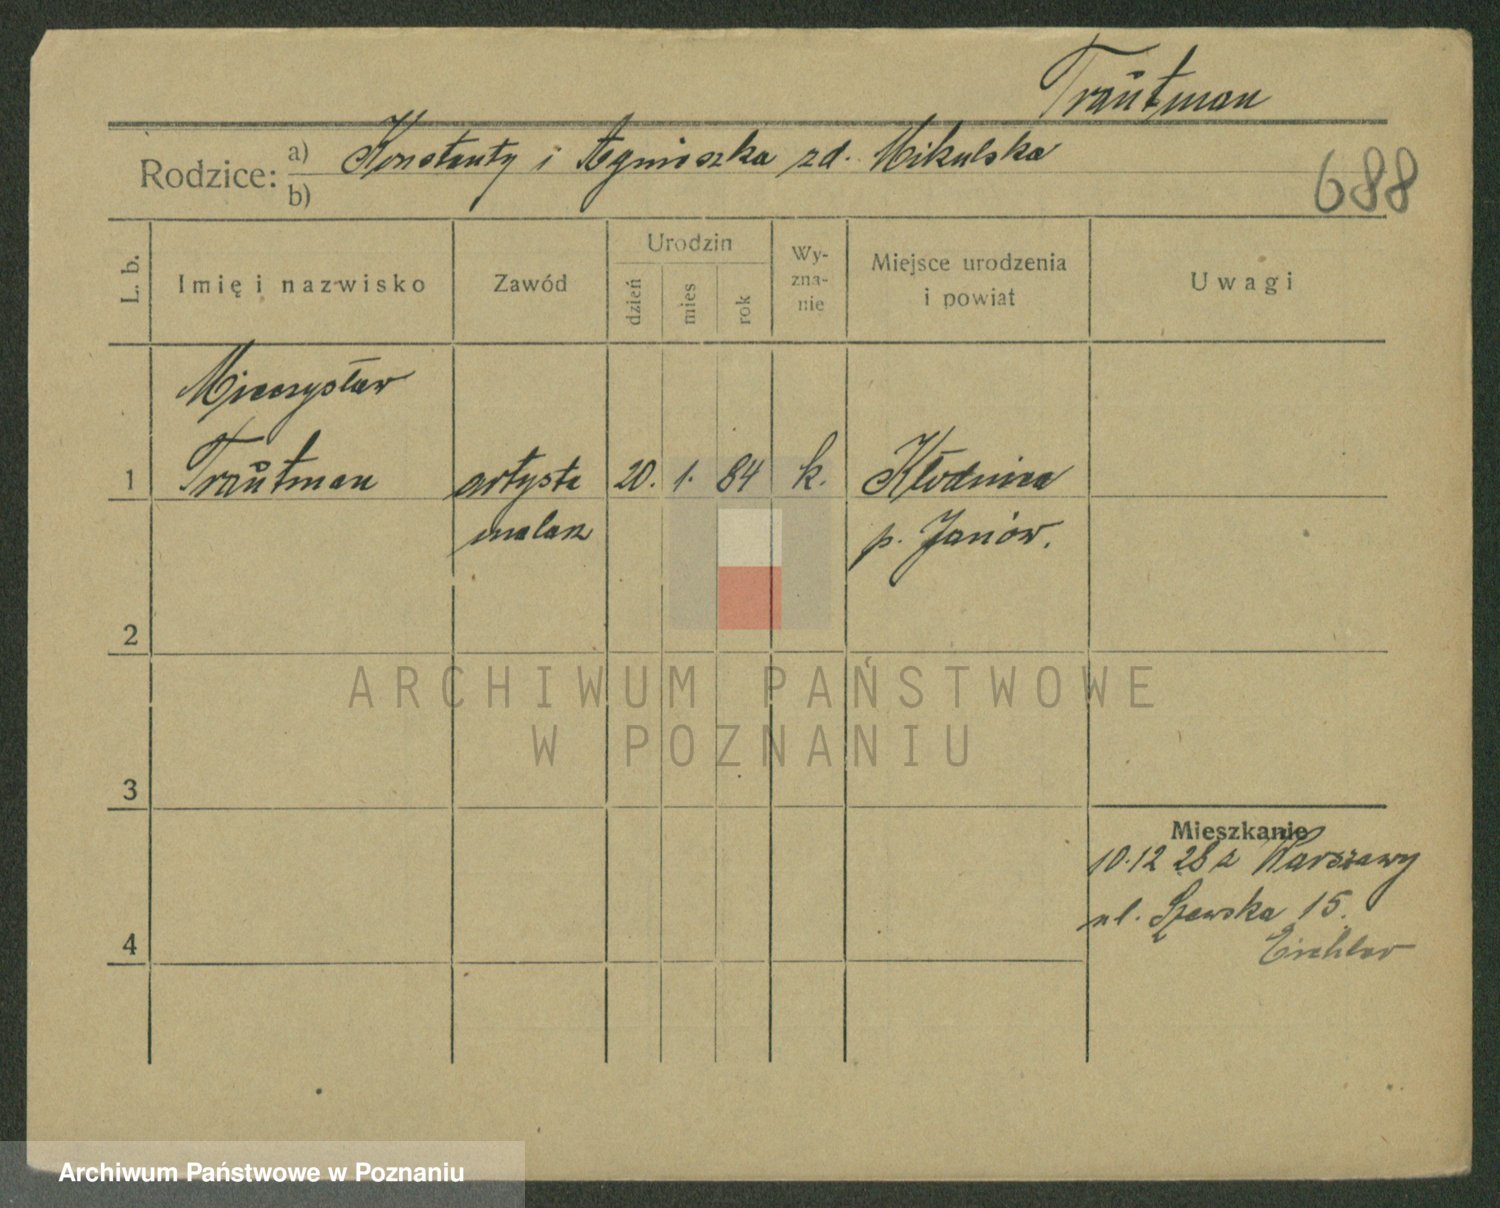 Trautman
Rodzice: a) Konstanty i Agnieszka zd. Mikulska
b)
688
L. b.
Imię i nazwisko
Zawód
Urodzin
dzień
mies
rok
Wy-
zna-
nie
Miejsce urodzenia
i powiat
Uwagi
Mieczysław
1 Trautman artysta 20. 1. 84 k. Kłodnica
malarz p. Janów.
2
3
4
Mieszkanie
10.12 28 z Warszawy
ul. Szewska 15.
Eichler
ARCHIWUM PAŃSTWOWE
W POZNANIU
Archiwum Państwowe w Poznaniu